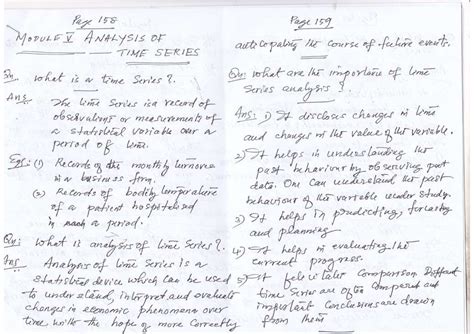 Page 158
MODULE V ANALYSIS OF
TIME SERIES
Qn. What is a time Series?.
Ans. The time Series is a record of
observations or measurements of
a statistical variable over a
period of time.
Egs: (1) Records of the monthly turnover
in a business firm.
(2) Records of bodily temperature
of a patient hospitalised
in such a period.
Qn: What is analysis of time Series?.
Ans Analysis of time Series is a
statistical device which can be used
to understand, interpret and evaluate
changes in economic phenomena over
time with the hope of more correctly
Page 159
anticipating the course of future events.
Qn: What are the importance of time
Series analysis?
Ans: 1) It discloses changes in time
and changes in the value of the variable.
2) It helps in understanding the
past behaviour by observing past
data. One can understand the past
behaviour of the variable under study.
3) It helps in predicting, forecasting
and planning
4) It helps in evaluating the
current progress.
5) It facilitates Comparison Different
time Series are often Compared and
important Conclusions are drawn
from them